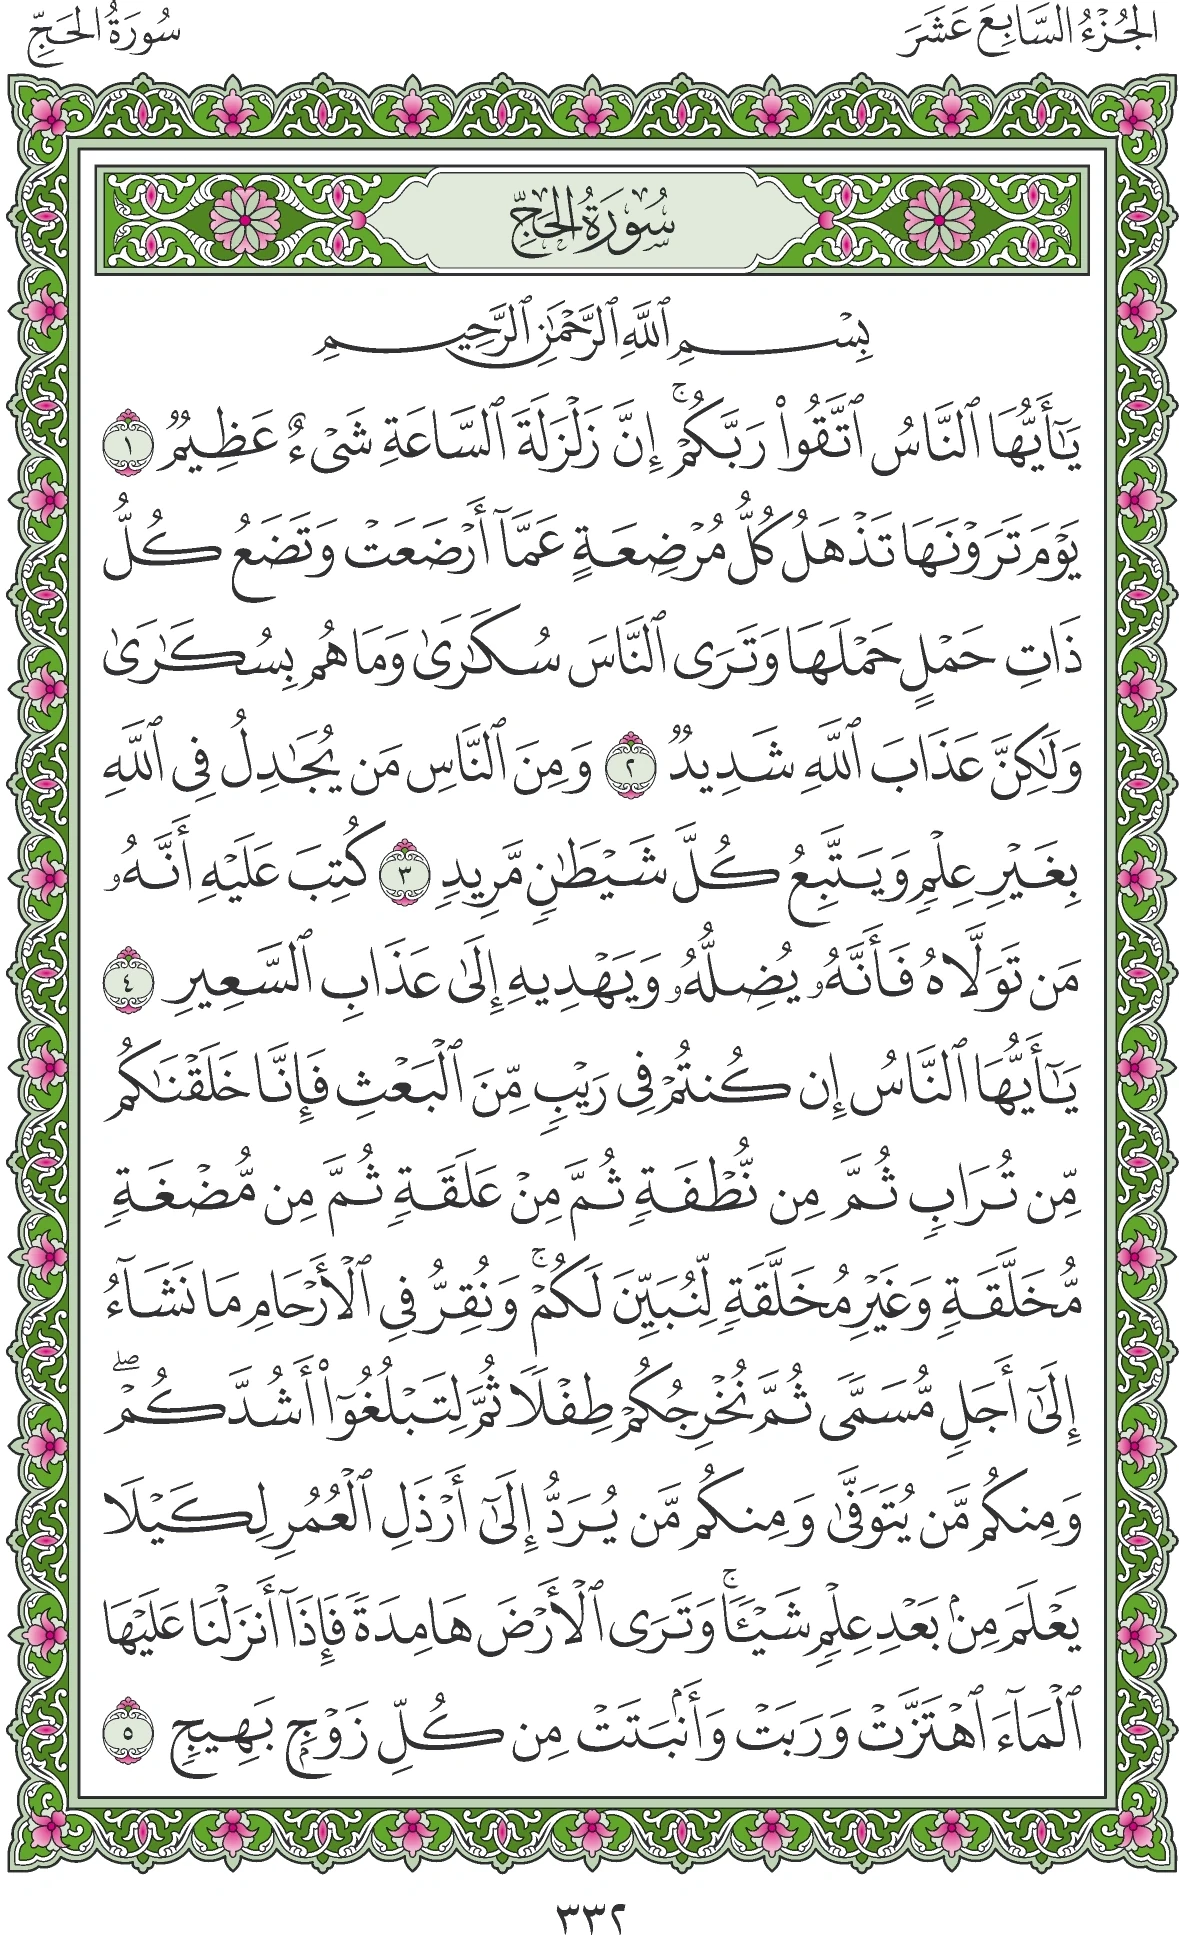 الجُزْءُ السَّابِعَ عَشَرَ
سُورَةُ الحَجِّ
سُورَةُ الحَجِّ
بِسْمِ ٱللَّهِ ٱلرَّحْمَٰنِ ٱلرَّحِيمِ
يَٰٓأَيُّهَا ٱلنَّاسُ ٱتَّقُوا۟ رَبَّكُمْ ۚ إِنَّ زَلْزَلَةَ ٱلسَّاعَةِ شَىْءٌ عَظِيمٌ ١
يَوْمَ تَرَوْنَهَا تَذْهَلُ كُلُّ مُرْضِعَةٍ عَمَّآ أَرْضَعَتْ وَتَضَعُ كُلُّ
ذَاتِ حَمْلٍ حَمْلَهَا وَتَرَى ٱلنَّاسَ سُكَٰرَىٰ وَمَا هُم بِسُكَٰرَىٰ
وَلَٰكِنَّ عَذَابَ ٱللَّهِ شَدِيدٌ ٢ وَمِنَ ٱلنَّاسِ مَن يُجَٰدِلُ فِى ٱللَّهِ
بِغَيْرِ عِلْمٍ وَيَتَّبِعُ كُلَّ شَيْطَٰنٍ مَّرِيدٍ ٣ كُتِبَ عَلَيْهِ أَنَّهُۥ
مَن تَوَلَّاهُ فَأَنَّهُۥ يُضِلُّهُۥ وَيَهْدِيهِ إِلَىٰ عَذَابِ ٱلسَّعِيرِ ٤
يَٰٓأَيُّهَا ٱلنَّاسُ إِن كُنتُمْ فِى رَيْبٍ مِّنَ ٱلْبَعْثِ فَإِنَّا خَلَقْنَٰكُم
مِّن تُرَابٍ ثُمَّ مِن نُّطْفَةٍ ثُمَّ مِنْ عَلَقَةٍ ثُمَّ مِن مُّضْغَةٍ
مُّخَلَّقَةٍ وَغَيْرِ مُخَلَّقَةٍ لِّنُبَيِّنَ لَكُمْ ۚ وَنُقِرُّ فِى ٱلْأَرْحَامِ مَا نَشَآءُ
إِلَىٰٓ أَجَلٍ مُّسَمًّى ثُمَّ نُخْرِجُكُمْ طِفْلًا ثُمَّ لِتَبْلُغُوٓا۟ أَشُدَّكُمْ ۖ
وَمِنكُم مَّن يُتَوَفَّىٰ وَمِنكُم مَّن يُرَدُّ إِلَىٰٓ أَرْذَلِ ٱلْعُمُرِ لِكَيْلَا
يَعْلَمَ مِنۢ بَعْدِ عِلْمٍ شَيْـًٔا ۚ وَتَرَى ٱلْأَرْضَ هَامِدَةً فَإِذَآ أَنزَلْنَا عَلَيْهَا
ٱلْمَآءَ ٱهْتَزَّتْ وَرَبَتْ وَأَنۢبَتَتْ مِن كُلِّ زَوْجٍۭ بَهِيجٍ ٥
٣٣٢